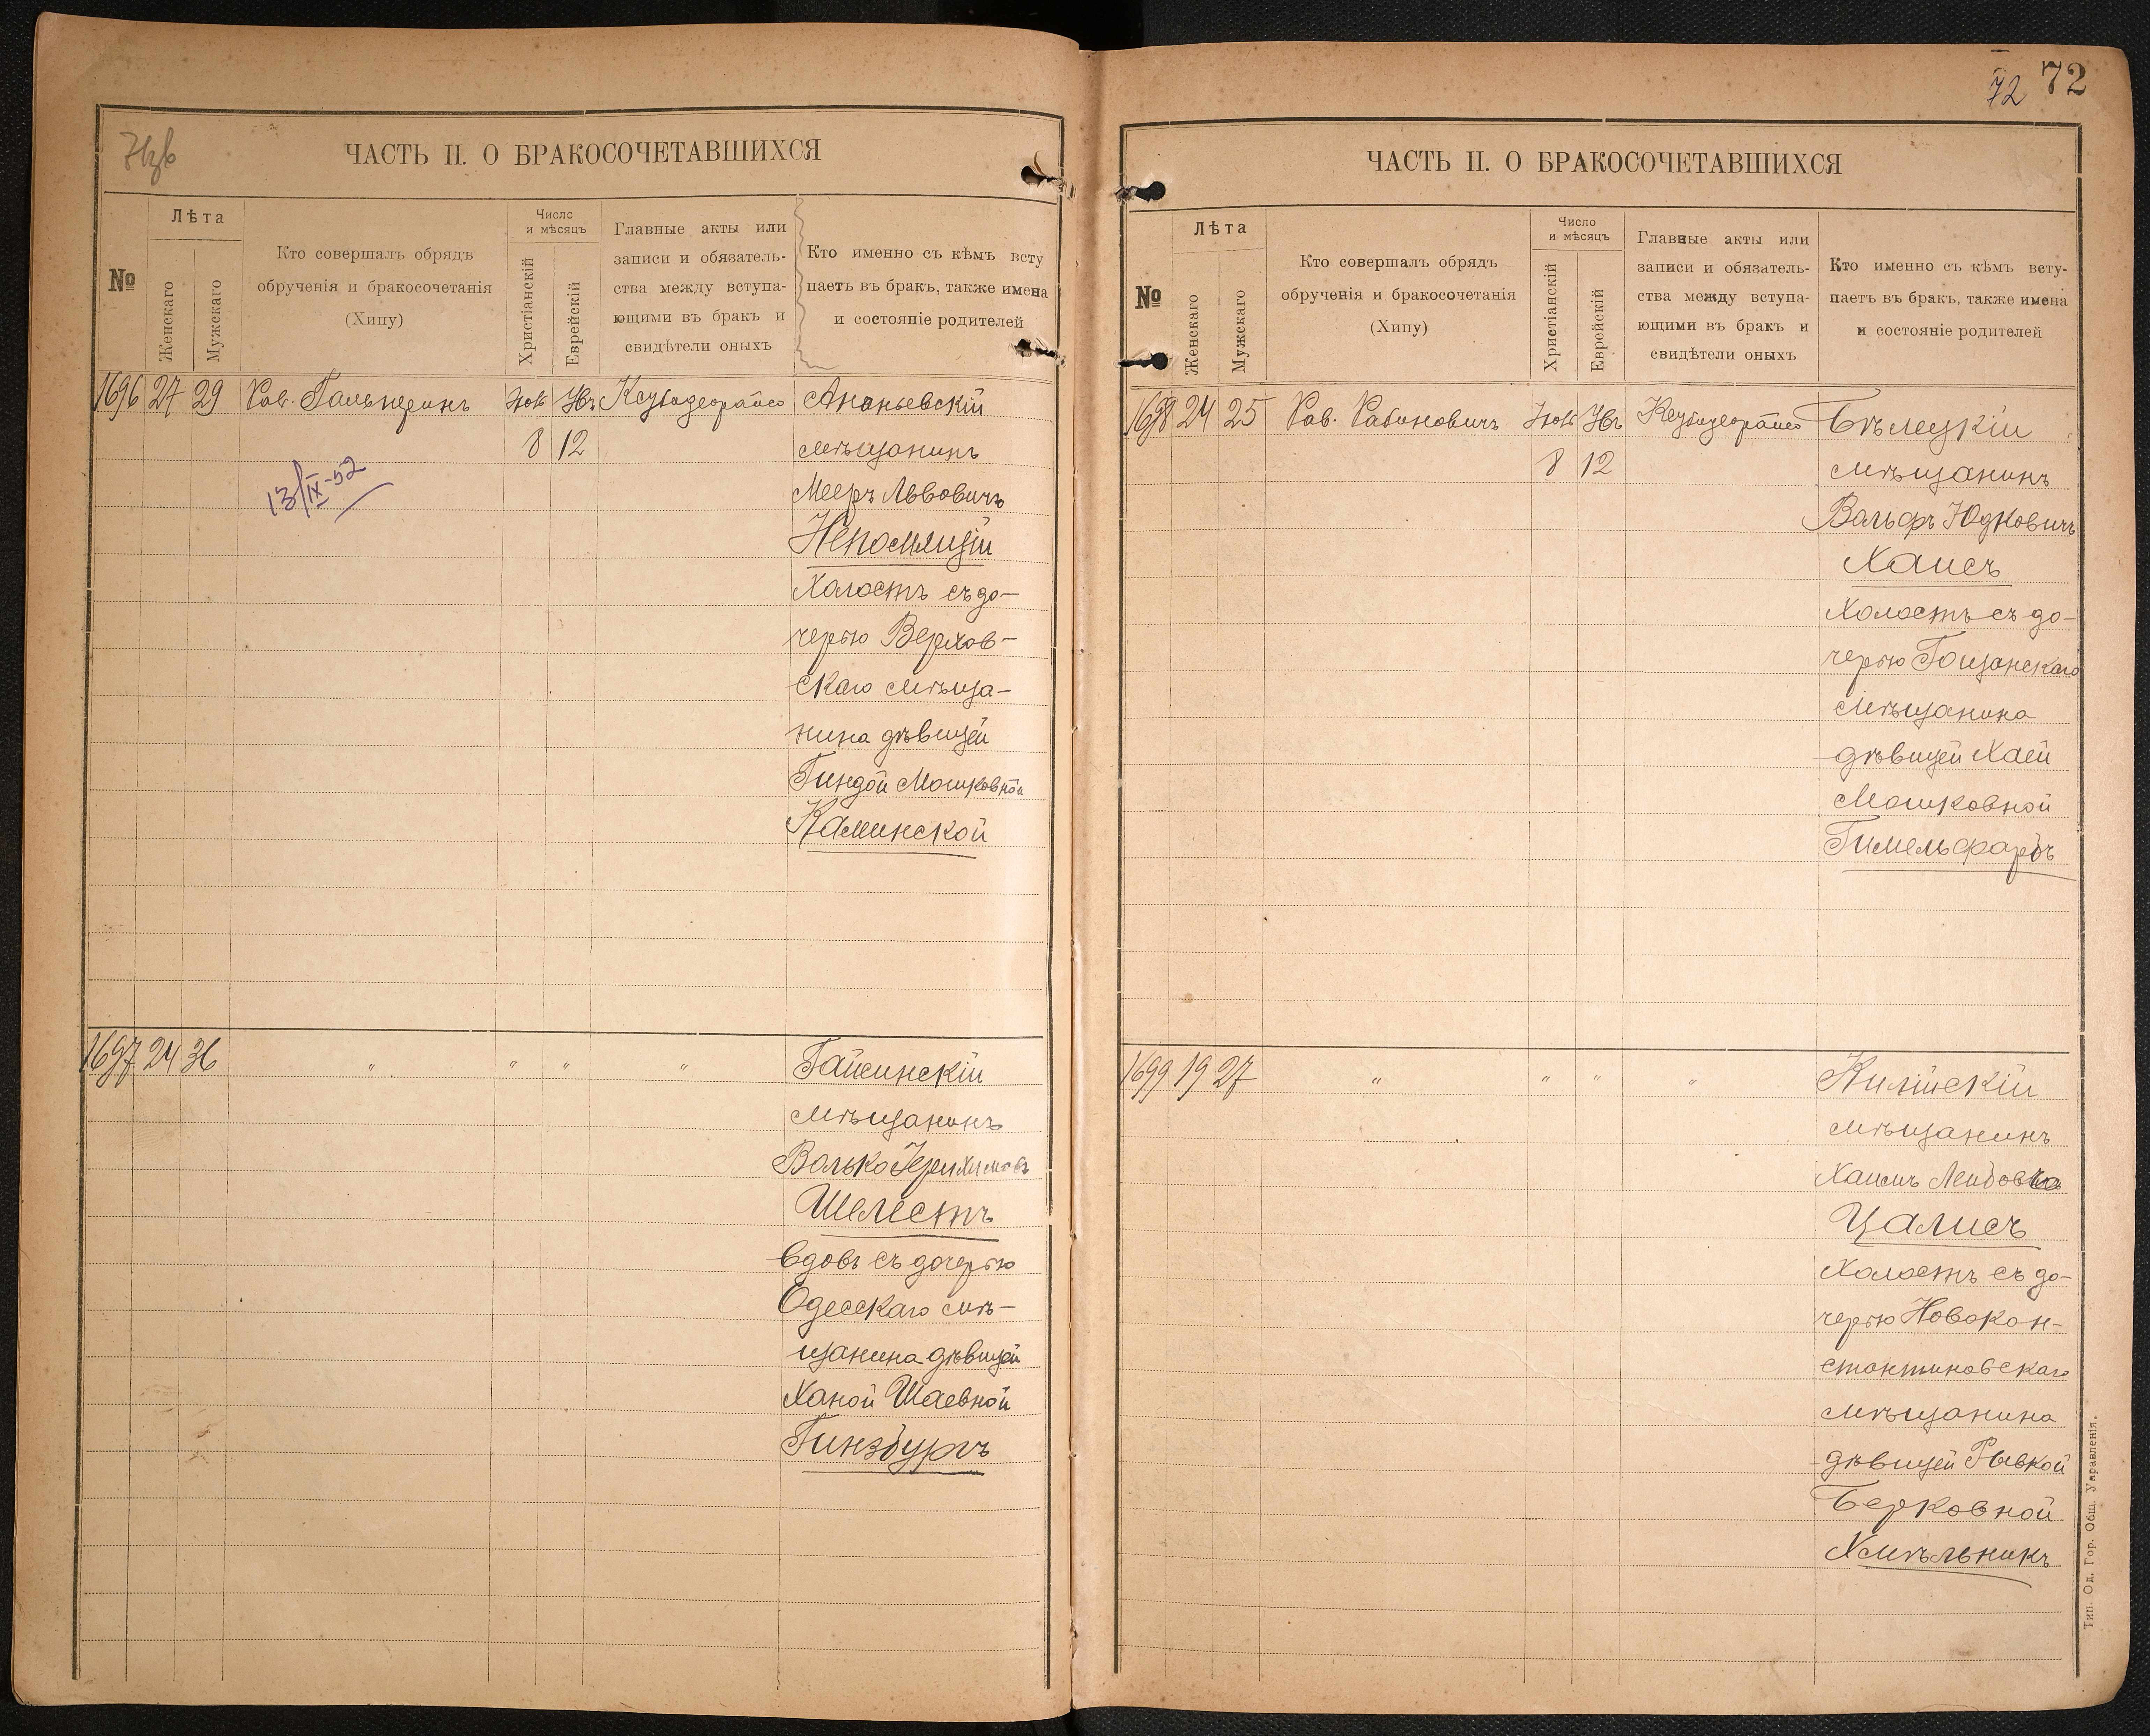 71об
ЧАСТЬ II. О БРАКОСОЧЕТАВШИХСЯ
№
Лѣта
Женскаго
Мужскаго
Кто совершалъ обрядъ
обрученія и бракосочетанія
(Хипу)
Число
и мѣсяцъ
Христіанскій
Еврейскій
Главные акты или
записи и обязатель-
ства между вступа-
ющими въ бракъ и
свидѣтели оныхъ
Кто именно съ кѣмъ всту
паетъ въ бракъ, также имена
и состояніе родителей
1696 27 29 Рав. Гальперинъ
8 12
13/IX-52
Ананьевскій
мѣщанинъ
Мееръ Львовичъ
Непомящій
холостъ съ до-
черью Верхов-
скаго мѣща-
нина дѣвицей
Гиндой Мошковной
Каминской
1697 24 36 " " " "
Гайсинскій
мѣщанинъ
Волько
Шелестъ
вдовъ съ дочерью
Одесскаго мѣ-
щанина дѣвицей
Ханой Шаевной
Гинзбургъ
72 72
ЧАСТЬ II. О БРАКОСОЧЕТАВШИХСЯ
№
Лѣта
Женскаго
Мужскаго
Кто совершалъ обрядъ
обрученія и бракосочетанія
(Хипу)
Число
и мѣсяцъ
Христіанскій
Еврейскій
Главные акты или
записи и обязатель-
ства между вступа-
ющими въ бракъ и
свидѣтели оныхъ
Кто именно съ кѣмъ всту-
паетъ въ бракъ, также имена
и состояніе родителей
1698 24 25 Рав. Рабиновичъ
8 12
Бѣлецкій
мѣщанинъ
Вольфъ Юдковичъ
Хаисъ
холостъ съ до-
черью Гощанскаго
мѣщанина
дѣвицей Хаей
Мошковной
Гимельфарбъ
1699 19 27 " " " "
Килійскій
мѣщанинъ
Хаимъ
Цалисъ
холостъ съ до-
черью Новокон-
стантиновскаго
мѣщанина
дѣвицей Рывкой
Берковной
Хмѣльникъ
Тип. Од. Гор. Общ. Управленія.